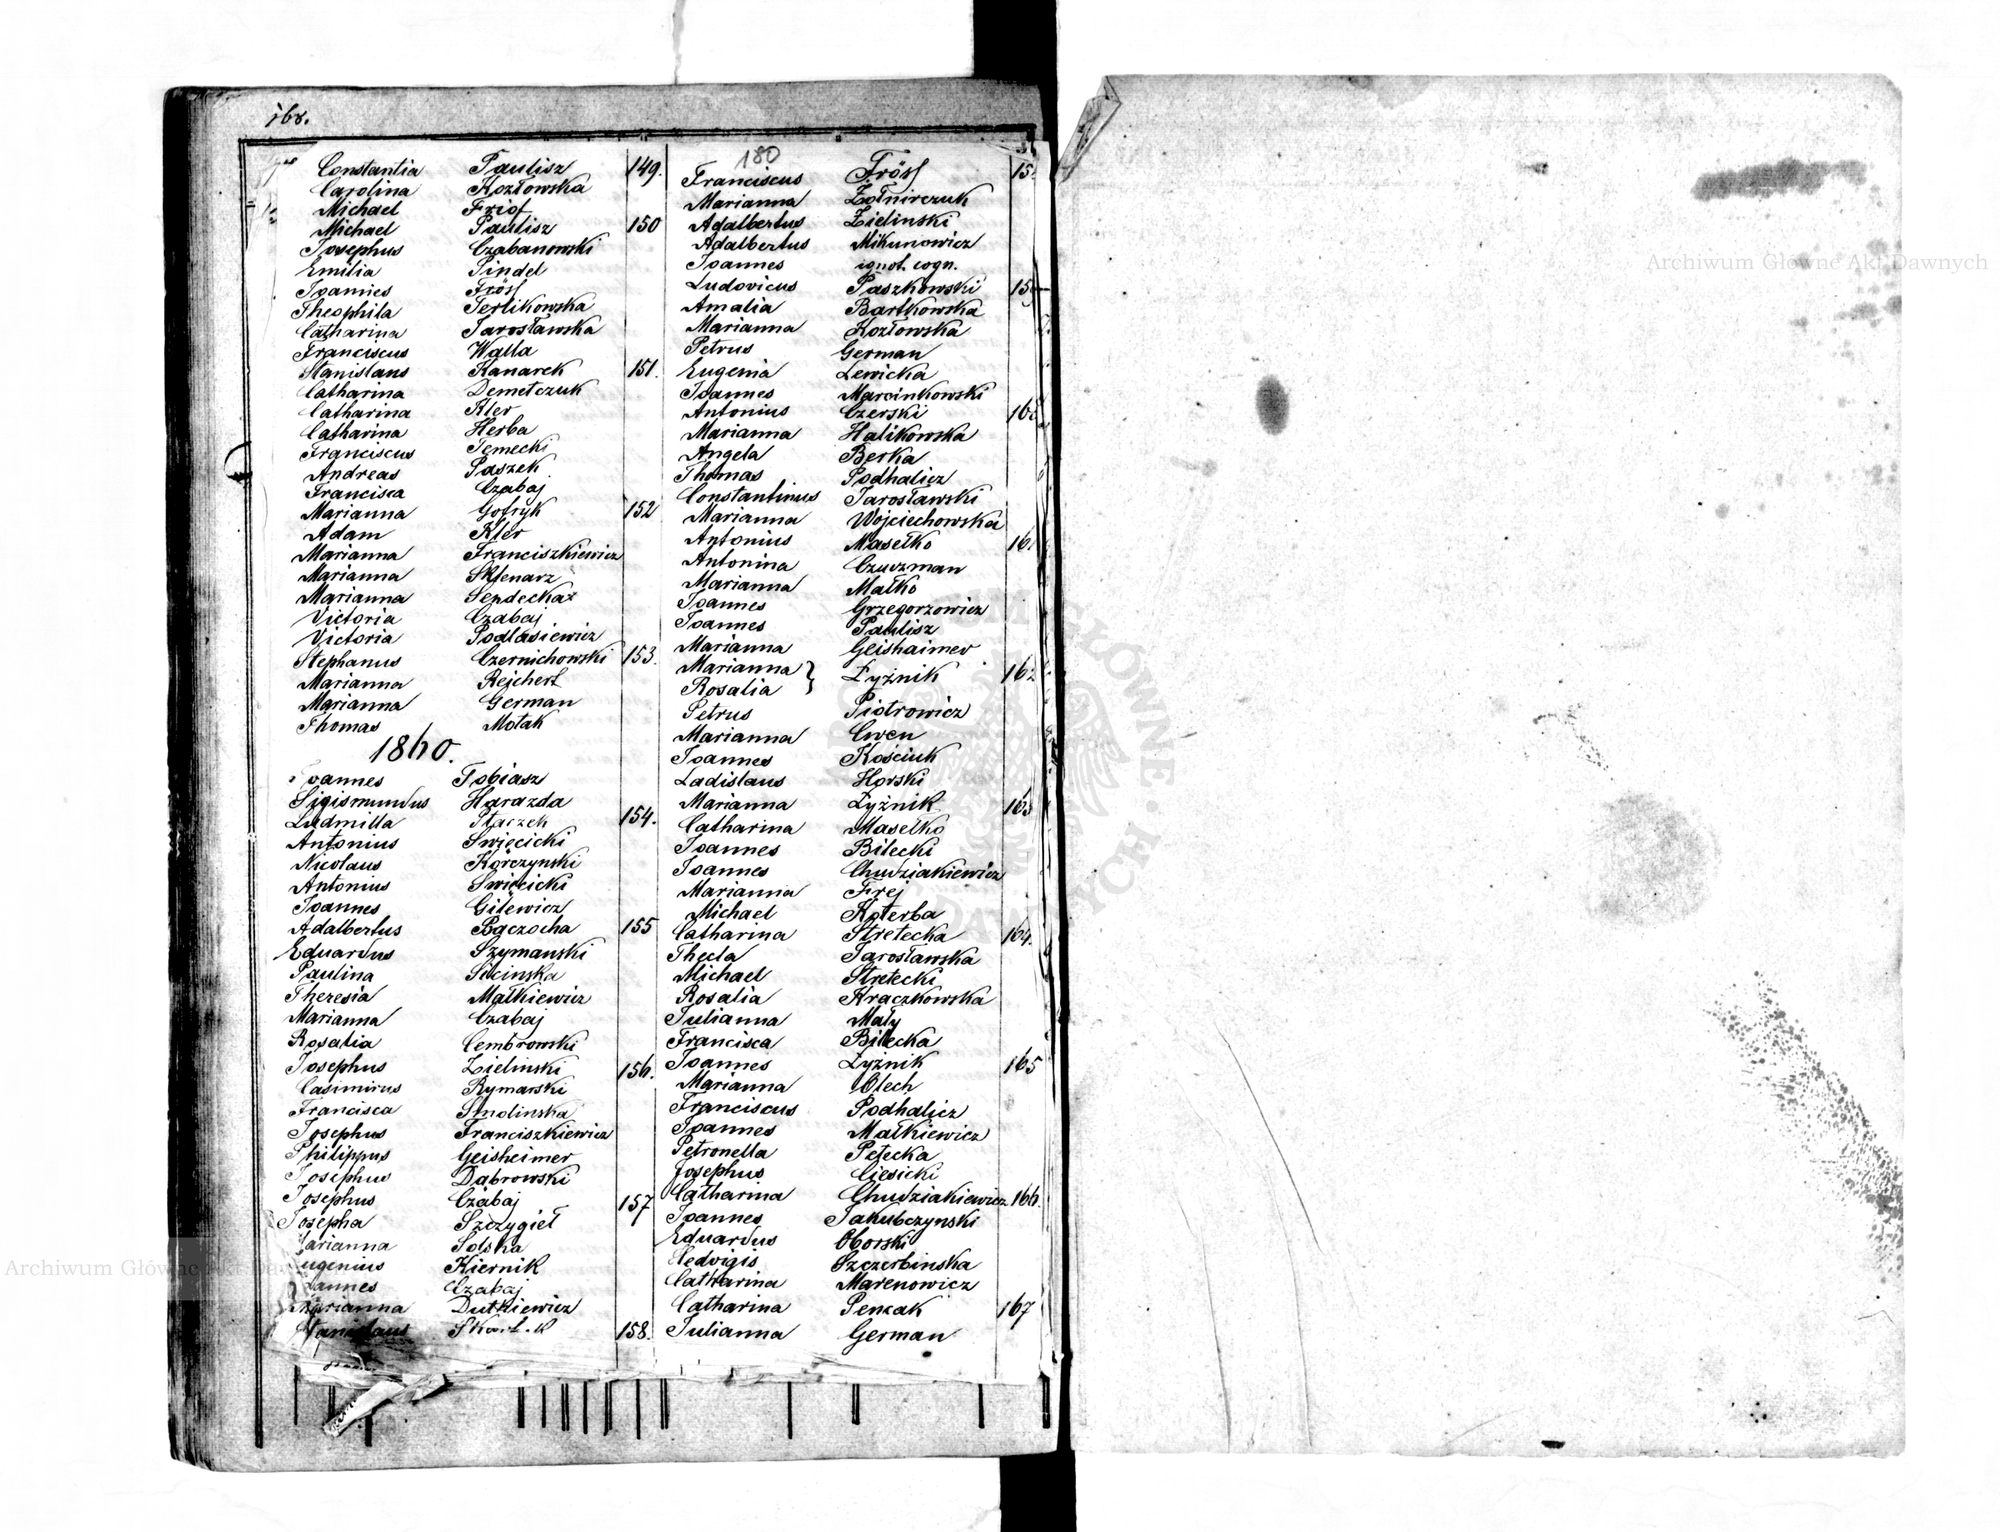 168.
Constantia Paulisz 149.
Carolina Kozłowska
Michael Friof
Michael Paulisz 150
Josephus Czabanowski
Emilia Pindel
Joannes Frösl
Theophila Terlikowska
Catharina Jarosławska
Franciscus Walla
Stanislaus Kanarek 151.
Catharina Demetczuk
Catharina Kler
Catharina Herba
Franciscus Temecki
Andreas Paszek
Francisca Czabaj
Marianna Gofryk 152
Adam Kler
Marianna Franciszkiewicz
Marianna Sklenarz
Marianna
Victoria Czabaj
Victoria Podlasiewicz
Stephanus Czernichowski 153.
Marianna Rejchert
Marianna German
Thomas Motak
1860.
Joannes Tobiasz
Sigismundus Harazda
Ludmilla Ptaczek 154.
Antonius Swięcicki
Nicolaus Korczynski
Antonius Swięcicki
Joannes Gilewicz
Adalbertus Paczocha 155
Eduardus Szymanski
Paulina Silcinska
Theresia Małkiewicz
Marianna Czabaj
Rosalia Cembrowski
Josephus Zielinski 156.
Casimirus Rymarski
Francisca Smolinska
Josephus Franciszkiewicz
Philippus Geisheimer
Josephus Dąbrowski
Josephus Czabaj 157
Josepha Szczygieł
Marianna Solska
Eugenius Kiernik
Joannes Czabaj
Marianna Dutkiewicz
Stanislaus 158.
180
Franciscus Frösl 15
Marianna Żołnirczuk
Adalbertus Zielinski
Adalbertus Mikunowicz
Joannes ignot. cogn.
Ludovicus Paszkowski 15
Amalia Bartkowska
Marianna Kozłowska
Petrus German
Eugenia Lewicka
Joannes Marcinkowski
Antonius Czerski 16
Marianna Halikowska
Angela Berka
Thomas Podhalicz
Constantinus Jarosławski
Marianna Wojciechowska
Antonius Masełko 161
Antonina Czuczman
Marianna Małko
Joannes Grzegorzowicz
Joannes Paulisz
Marianna Geishaimer
Marianna } Łyżnik 162
Rosalia
Petrus Piotrowicz
Marianna Cwen
Joannes Kościuk
Ladislaus Horski
Marianna Łyżnik 163
Catharina Masełko
Joannes Bilecki
Joannes Chudziakiewicz
Marianna Frej
Michael Koterba
Catharina Strelecka 164.
Thecla Jarosławska
Michael Strelecki
Rosalia Kraczkowska
Julianna Mały
Francisca Bilecka
Joannes Łyżnik 165
Marianna Olech
Franciscus Podhalicz
Joannes Małkiewicz
Petronella Pełecka
Josephus Ciesicki
Catharina Chudziakiewicz 166.
Joannes Jakubczynski
Eduardus Oborski
Hedvigis Szczerbinska
Catharina Marenowicz
Catharina Penzak 167
Julianna German
Archiwum Główne Akt Dawnych
Archiwum Główne Akt Dawnych